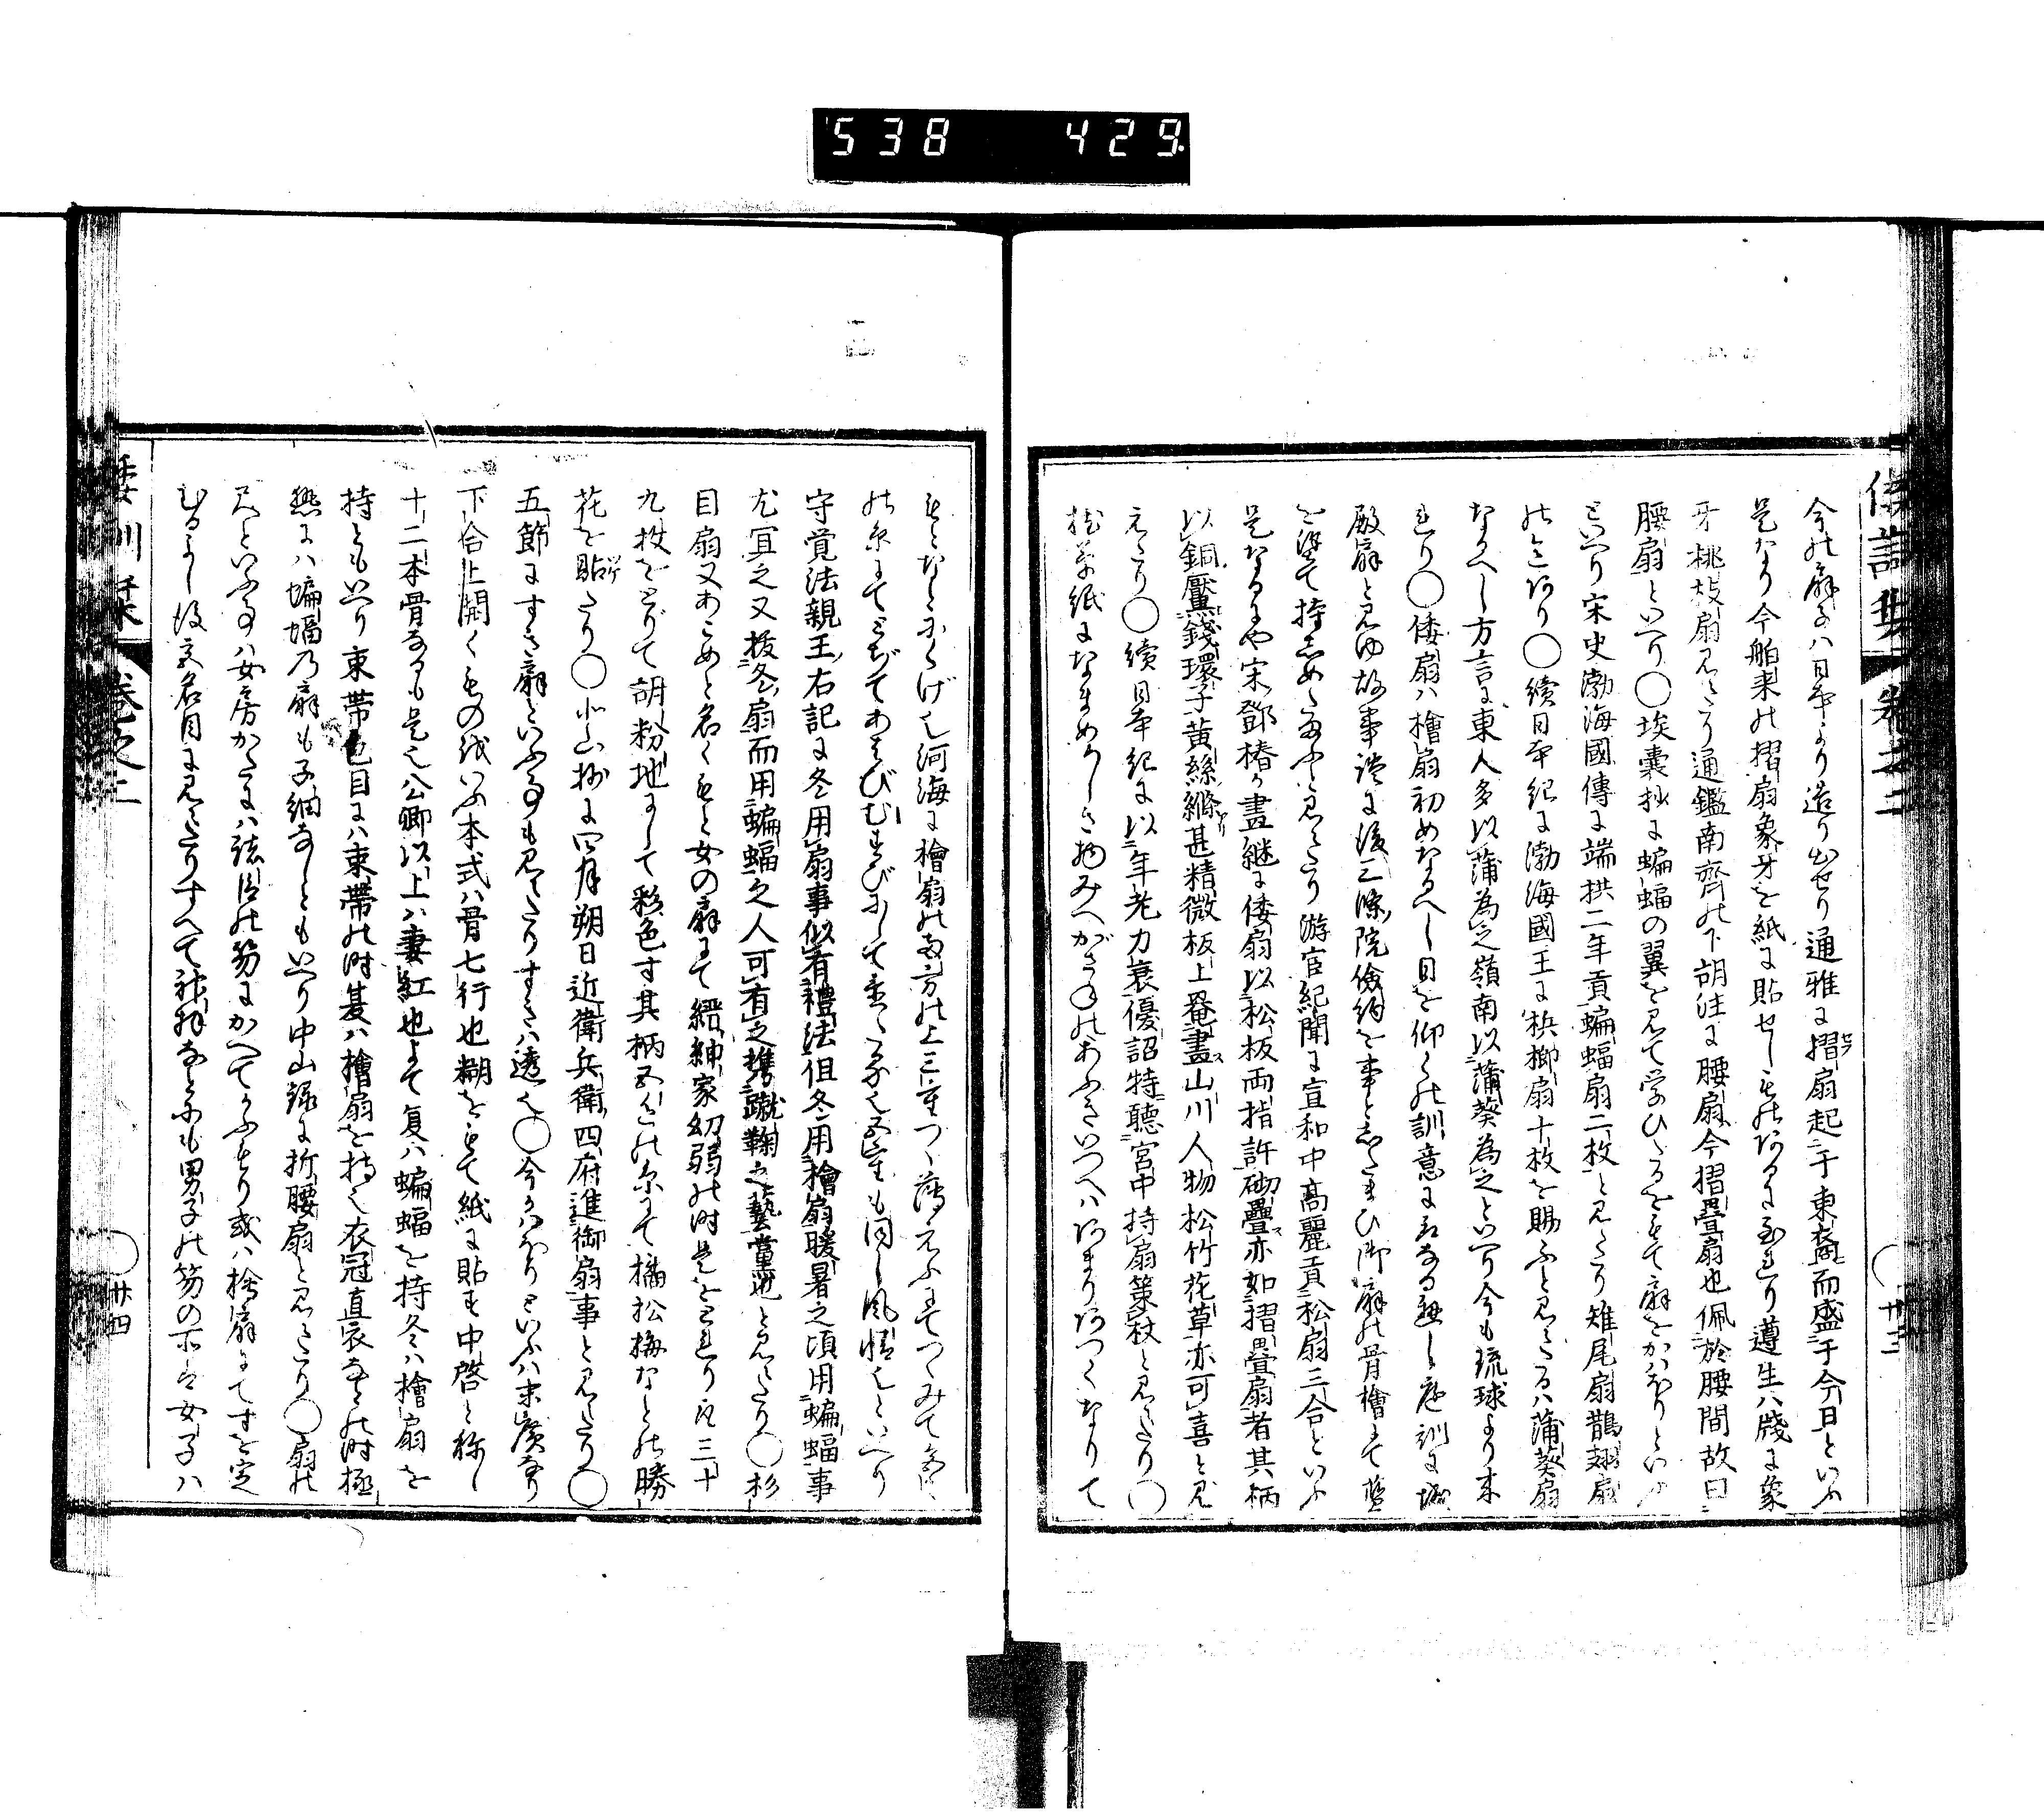 538 429
倭訓栞 卷之二 卅三
今の扇子ハ日本より造り出せり通雅に摺扇起于東裔而盛于今日といふ
是なり今舶来の摺扇象牙を紙に貼せしものあるに至れり遵生八牋に象
牙桃枝扇見えたり通鑑南齊の下胡注に腰扇今摺疊扇也佩於腰間故曰
腰扇といへり〇埃囊抄に蝙蝠の翼を見て学ひたるをもて扇をかはほりといふ
といへり宋史渤海國傳に端拱二年貢蝙蝠扇二枚と見えたり雉尾扇鵲翅扇
の名あり〇續日本紀に渤海國王に檳榔扇十枚を賜ふと見えたるハ蒲葵扇
なるへし方言に東人多以蒲為之嶺南以蒲葵為之といへり今も琉球より来
れり〇倭扇ハ檜扇初めなるへし日を仰くの訓意に
殿扇と見ゆ故事談に後三條院儉約を事としたまひ御扇の骨檜にて藍
を塗て持しめたまふと見えたり游宦紀聞に宣和中高麗貢松扇三合といふ
是なるにや宋鄧椿か畫継に倭扇以松板両指許砌疊亦如摺疊扇者其柄
以銅黶錢環子黄絲縧甚精微板上罨畫山川人物松竹花草亦可喜と見
えたり〇續日本紀に以年老力衰優詔特聽宮中持扇策杖と見えたり〇
枕草紙になまめかしき物みへがさねのあふきいつへハあまりあつくなりて
もとなとにくげ也河海に檜扇の両方の上三重つゝ薄えふにてつゝみて
の糸にてとぢてあはびむすびにして五重も同し風情也といへり
守覚法親王右記に冬用扇事似有禮法但冬用檜扇暖暑之頃用蝙蝠事
尤宜之又扱冬扇而用蝙蝠之人可有之携蹴鞠之藝黨也と見えたり〇杉
目扇又あこめと名くもと女の扇にて縉紳家幼弱の時是をとれり凡三十
九枚をとぢて胡粉地にして彩色す其柄五色の糸にて橘松梅なとの勝
花を貼たり〇北山抄に四月朔日近衛兵衛四府進御扇事と見えたり〇
五節にすき扇といふ事も見えたりすきハ透也〇今かはほりといふハ末廣なり
下合上開くもの故いふ本式ハ骨七行也糊をもて紙に貼す中啓と称し
十二本骨なるも是也公卿以上ハ妻紅也よて夏ハ蝙蝠を持冬ハ檜扇を
持ともいへり束帯色目にハ束帯の時夏ハ檜扇を持也衣冠直衣なとの時極
熱にハ蝙蝠乃扇も子細なしともいへり中山録に折腰扇と見えたり〇扇の
尺といふ事ハ女房かたにハ諸臣の笏にかへてもふけたり或ハ檜扇にて寸を定
むるよし後宮名目に見えたりすへて神拝なとにも男子の笏の所を女子ハ
倭訓栞 卷之二 卅四